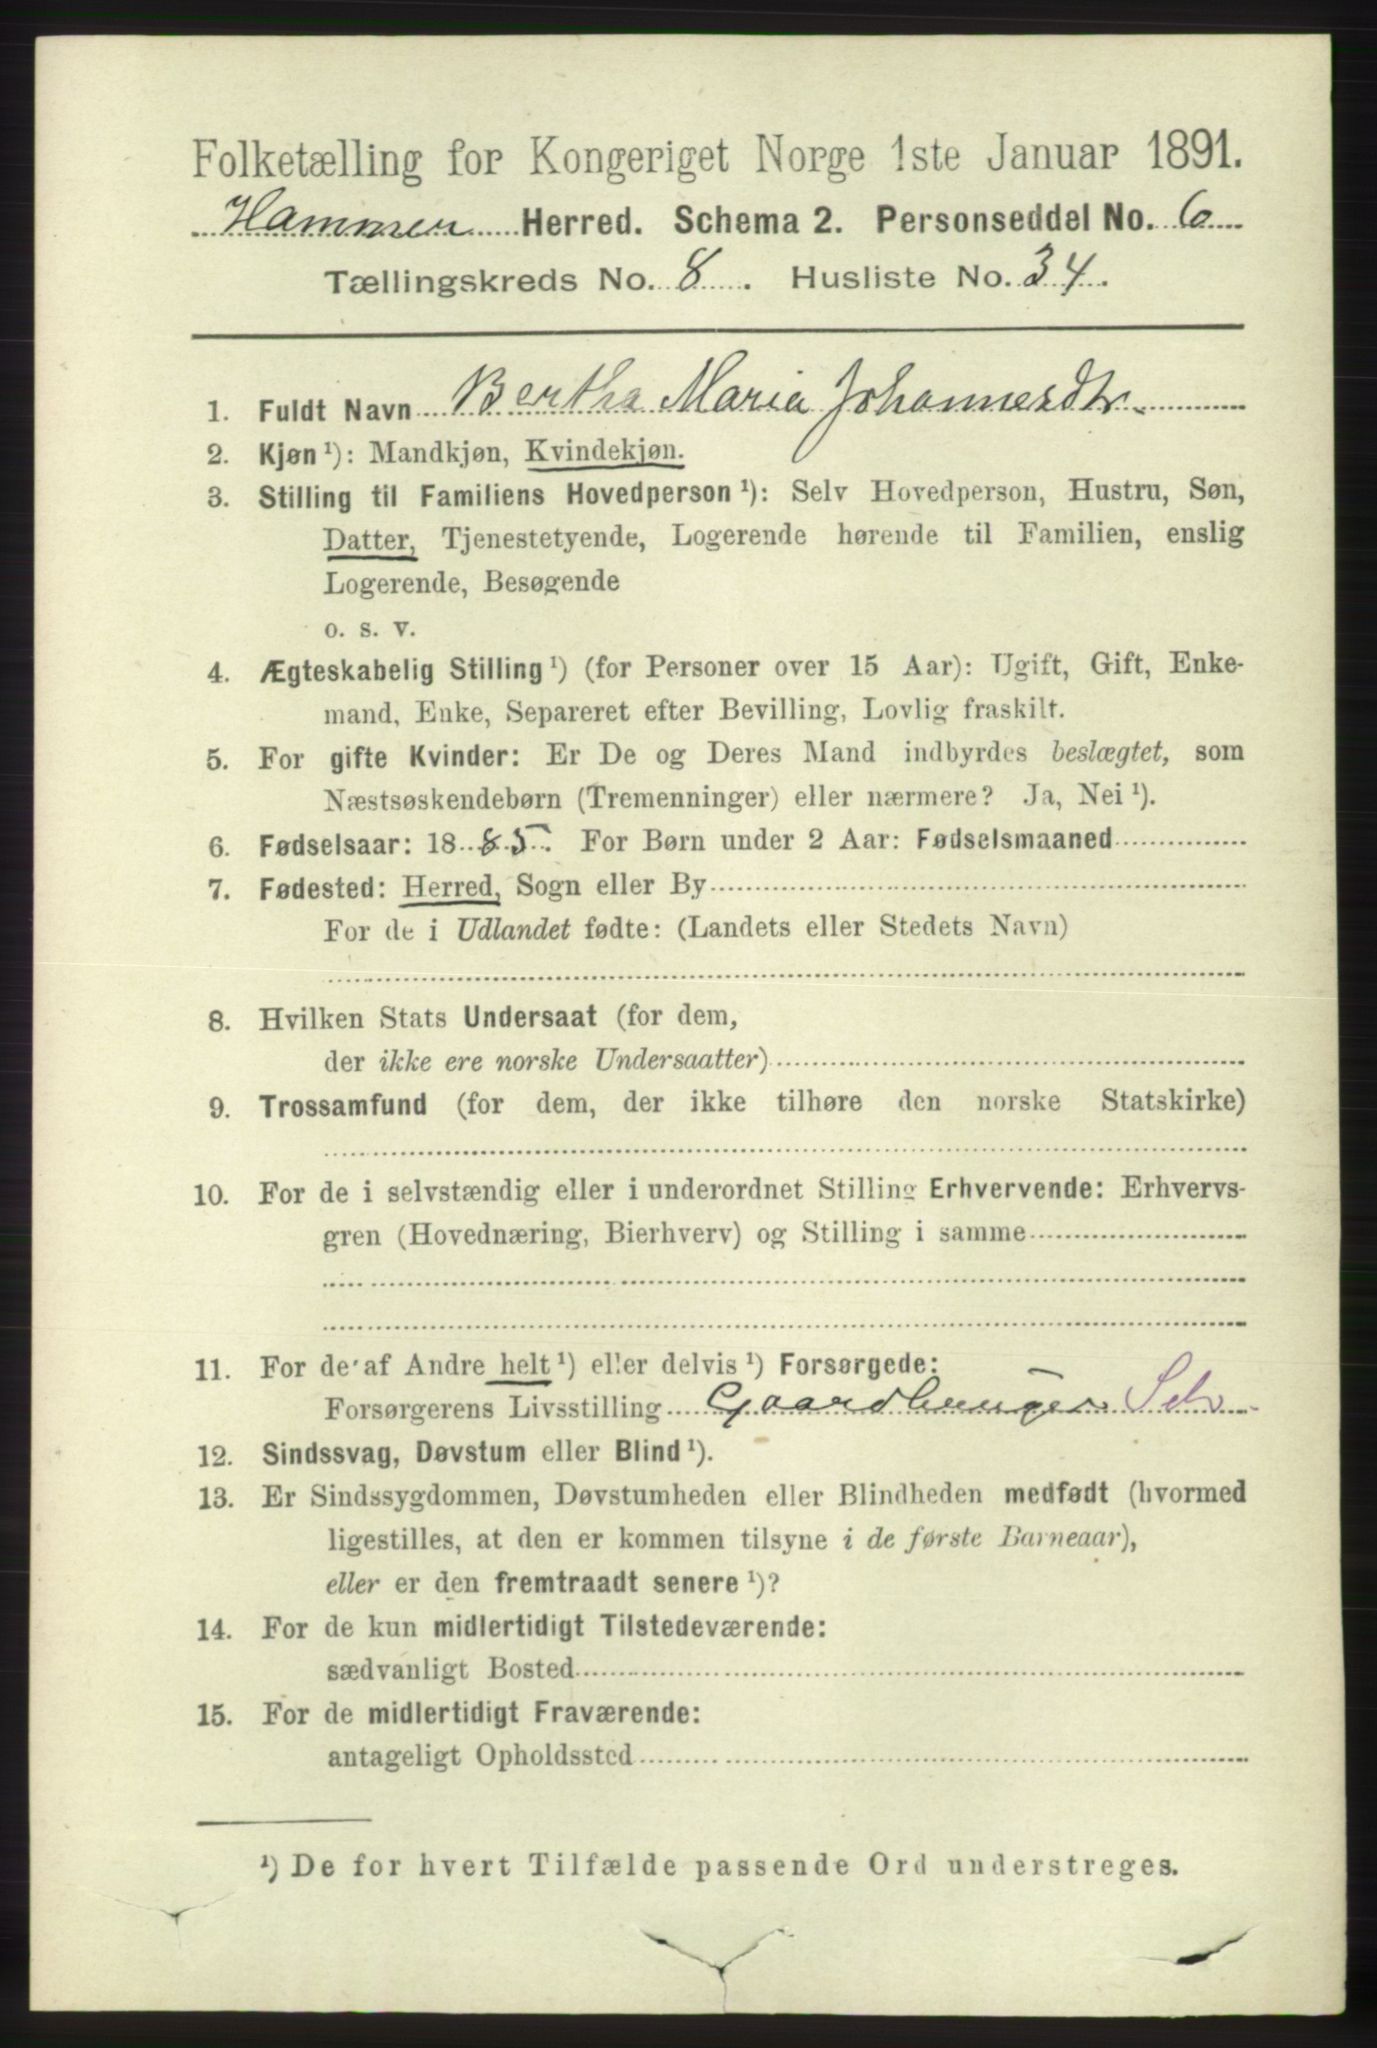 Folketælling for Kongeriget Norge 1ste Januar 1891.
Hammer Herred. Schema 2. Personseddel No. 6
Tællingskreds No. 8. Husliste No. 34.
1. Fuldt Navn Bertha Maria Johannesdtr.
2. Kjøn ¹): Mandkjøn, Kvindekjøn.
3. Stilling til Familiens Hovedperson ¹): Selv Hovedperson, Hustru, Søn,
Datter, Tjenestetyende, Logerende hørende til Familien, enslig
Logerende, Besøgende
o. s. v.
4. Ægteskabelig Stilling ¹) (for Personer over 15 Aar): Ugift, Gift, Enke-
mand, Enke, Separeret efter Bevilling, Lovlig fraskilt.
5. For gifte Kvinder: Er De og Deres Mand indbyrdes beslægtet, som
Næstsøskendebørn (Tremenninger) eller nærmere? Ja, Nei ¹).
6. Fødselsaar: 1885. For Børn under 2 Aar: Fødselsmaaned
7. Fødested: Herred, Sogn eller By
For de i Udlandet fødte: (Landets eller Stedets Navn)
8. Hvilken Stats Undersaat (for dem,
der ikke ere norske Undersaatter)
9. Trossamfund (for dem, der ikke tilhøre den norske Statskirke)
10. For de i selvstændig eller i underordnet Stilling Erhvervende: Erhvervs-
gren (Hovednæring, Bierhverv) og Stilling i samme
11. For de af Andre helt ¹) eller delvis ¹) Forsørgede:
Forsørgerens Livsstilling Gaardbruger. Selv
12. Sindssvag, Døvstum eller Blind ¹).
13. Er Sindssygdommen, Døvstumheden eller Blindheden medfødt (hvormed
ligestilles, at den er kommen tilsyne i de første Barneaar),
eller er den fremtraadt senere ¹)?
14. For de kun midlertidigt Tilstedeværende:
sædvanligt Bosted
15. For de midlertidigt Fraværende:
antageligt Opholdssted
¹) De for hvert Tilfælde passende Ord understreges.